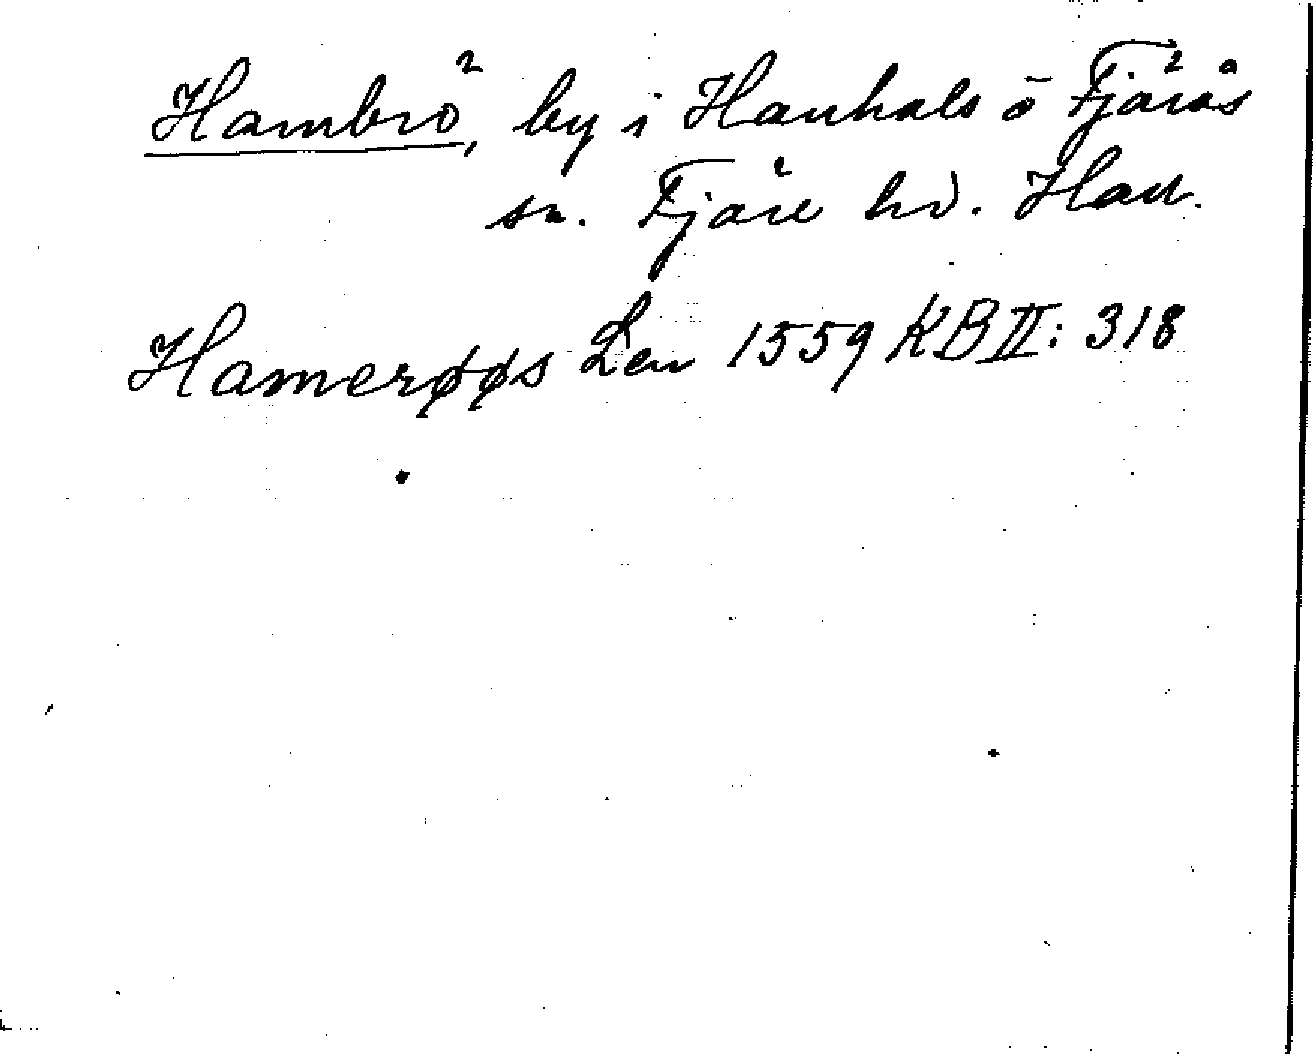 Hambrö, by i Hanhals o Fjärås
sn. Fjäre hd. Hall.
Hamerøøs Len 1559 KB II: 318